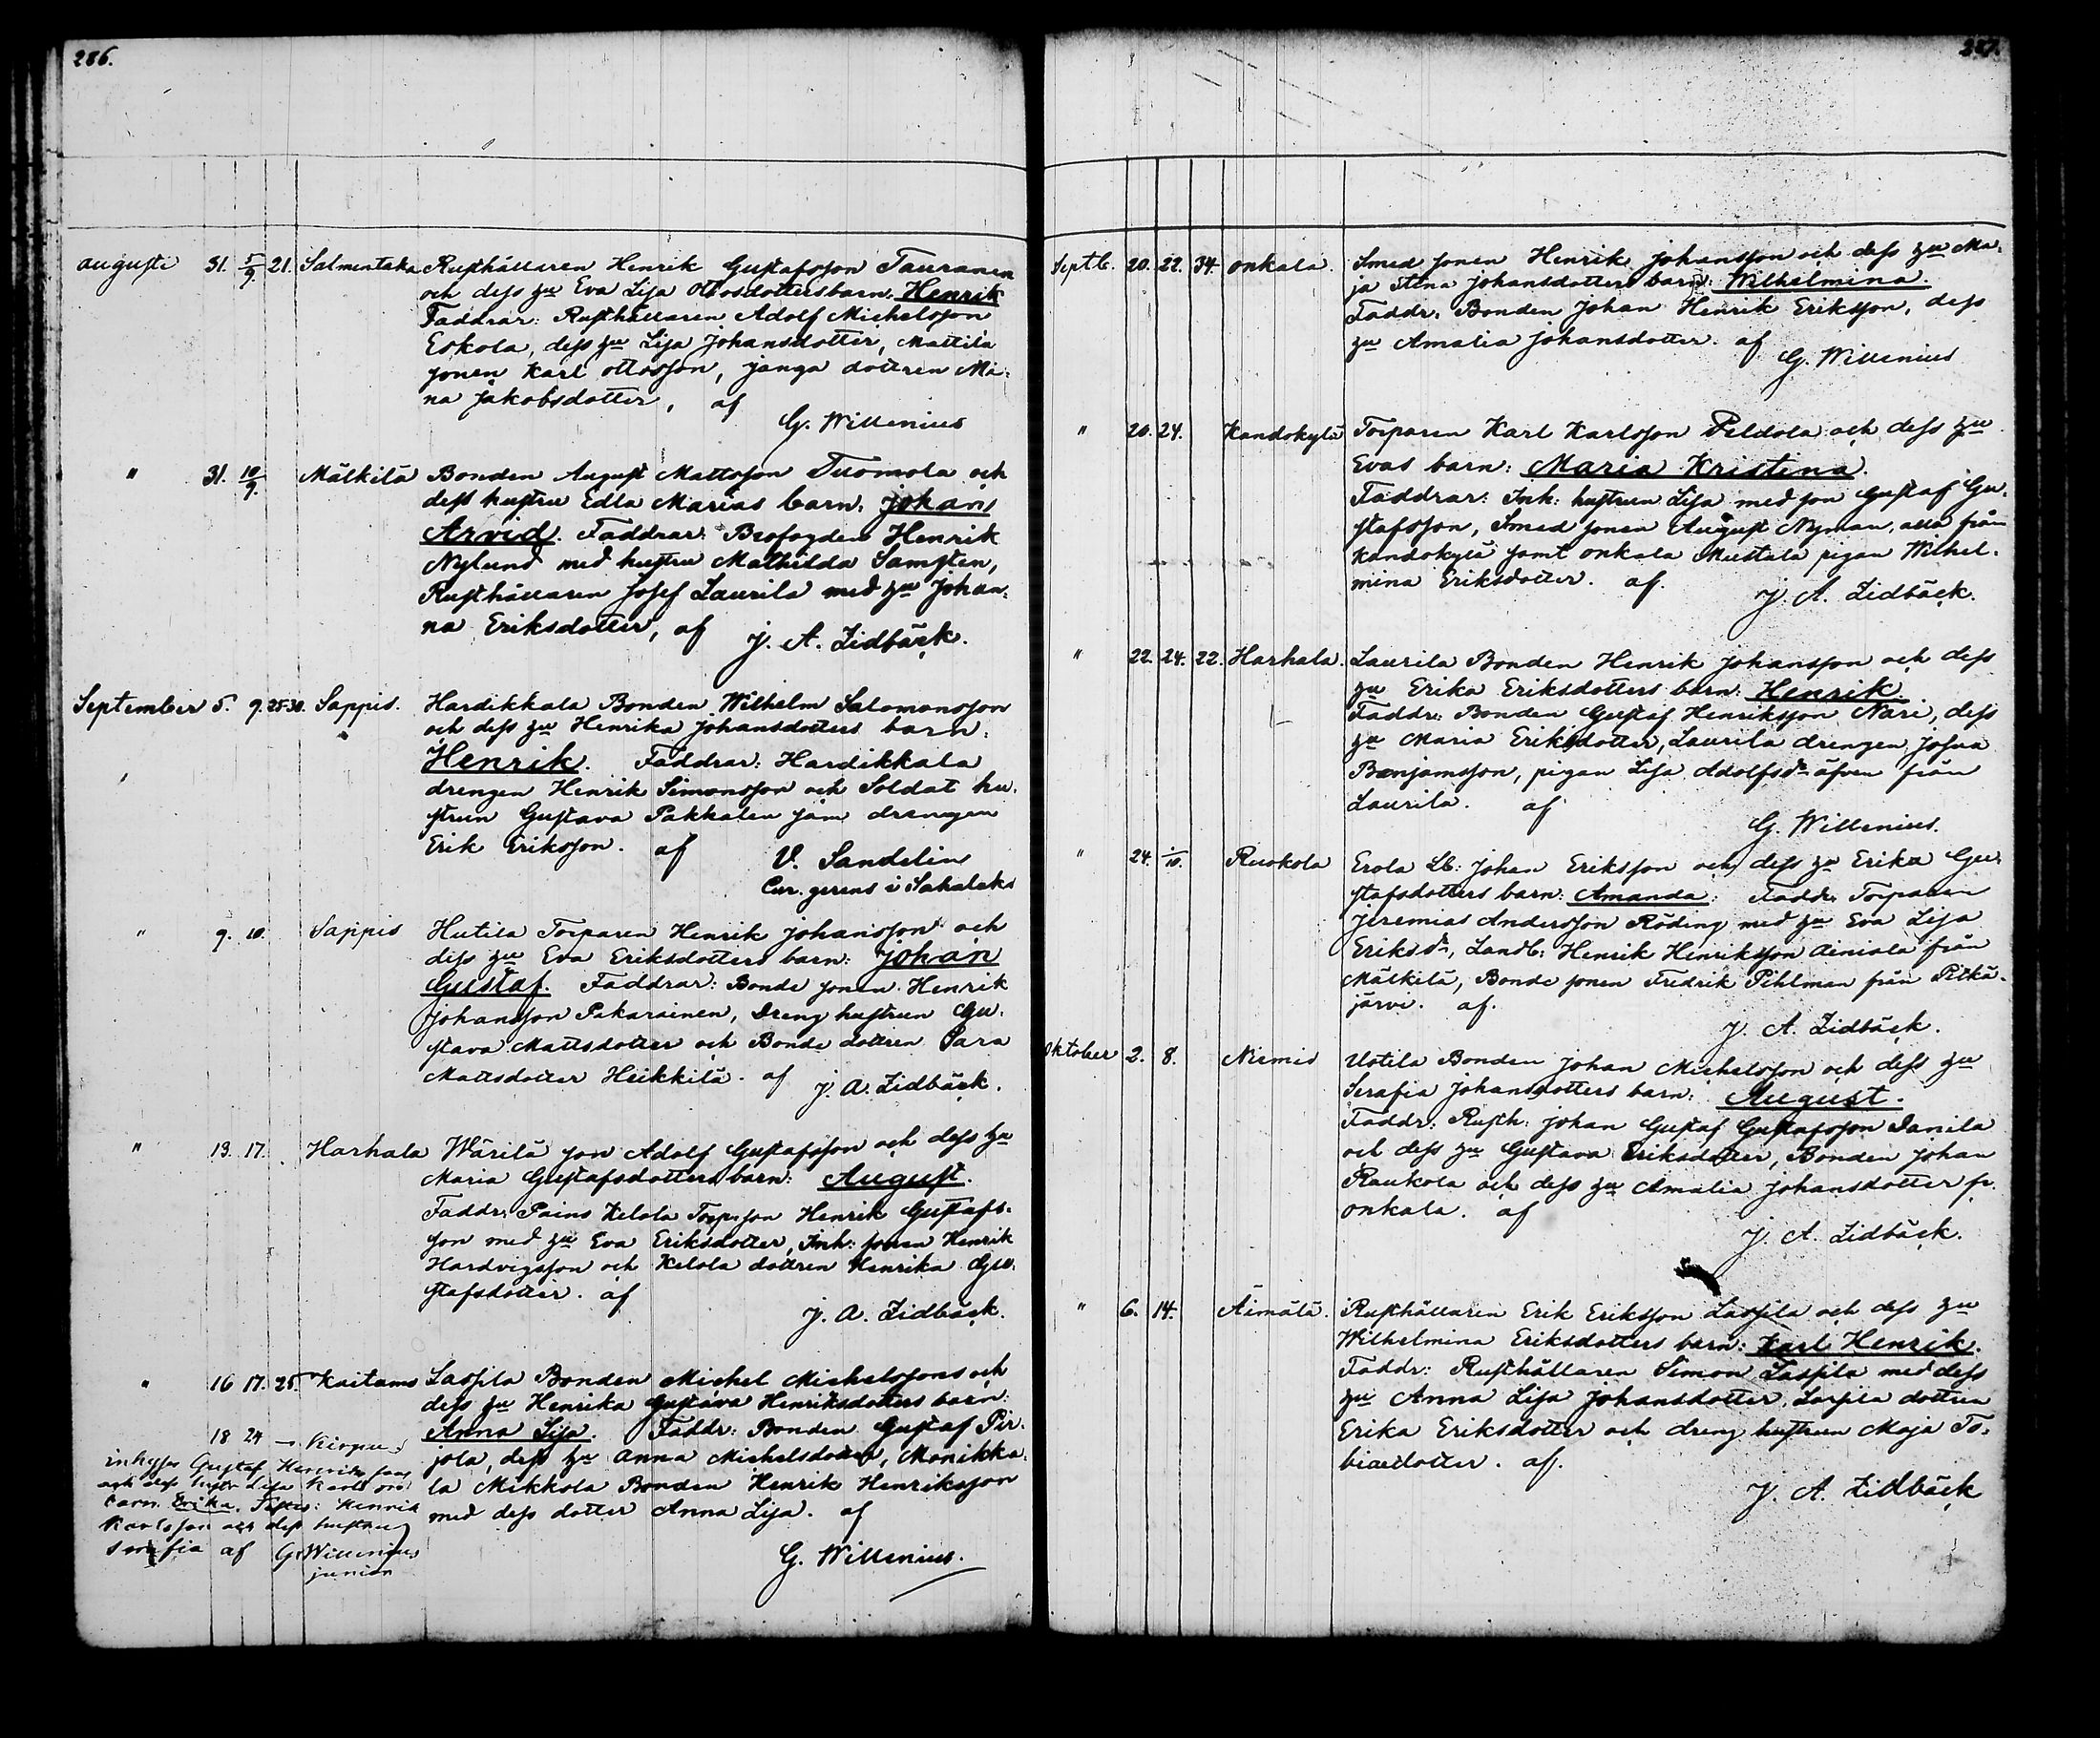 286.
Augusti 31. 5/9. 21. Salmentaka Rusthållaren Henrik Gustafsson Tauranen
och dess hu Eva Lisa Ottosdotters barn: Henrik
Faddrar: Rusthållaren Adolf Michelsson
Eskola, dess hu Lisa Johansdotter, Mattila
sonen Karl Ottosson, Janga dottren Mi-
na Jakobsdotter, af
G. Willenius
" 31. 10/9. Mälkilä Bonden August Mattsson Tuomola och
dess hustru Edla Marias barn: Johan
Arvid. Faddrar: Brofogden Henrik
Nylund med hustru Mathilda Samsten,
Rusthållaren Josef Laurila med hu Johan-
na Eriksdotter, af J. A. Lidbäck.
September 5. 9. 25-30. Sappis. Hardikkala Bonden Wilhelm Salomonsson
och dess hu Henrika Johansdotters barn:
Henrik. Faddrar: Hardikkala
drengen Henrik Simonsson och Soldat hu-
strun Gustava Pakkalen jäm drengen
Erik Eriksson. af V. Sandelin
Cur. gerens i Sahalaks
" 9. 10. Sappis Hutila Torparen Henrik Johansson och
dess hu Eva Eriksdotters barn: Johan
Gustaf. Faddrar: Bonde sonen Henrik
Johansson Pakarainen, Dreng hustrun Gu-
stava Mattsdotter och Bonde dottren Sara
Mattsdotter Heikkilä. af J. A. Lidbäck.
" 13. 17. Harhala Wärilä son Adolf Gustafsson och dess hu
Maria Gustafsdotters barn: August.
Faddr: Pains Kelola Torp. son Henrik Gustafs-
son med hu Eva Eriksdotter, Inh: sonen Henrik
Hardvigsson och Kelola dottren Henrika Gu-
stafsdotter. af
J. A. Lidbäck.
" 16 17. 25. Kaitams Lassila Bonden Michel Michelssons och
dess hu Henrika Gustava Henriksdotters barn:
Anna Lisa. Faddr: Bonden Gustaf Pir-
jola, dess hu Anna Michelsdotter, Monikka-
la Mikkola Bonden Henrik Henriksson
med dess dotter Anna Lisa. af
G. Willenius.
18 24
inhyses Gustaf Henriksson
och dess hustr Lisa Karls
barn Erika. Test: Henrik
Karlsson och dess hustru
Serafia af G. Willenius
junior
287.
Septb. 20. 22. 34. Onkala. Smed sonen Henrik Johansson och dess hu Ma-
ja Stina Johansdotters barn: Wilhelmina.
Faddr: Bonden Johan Henrik Eriksson, dess
hu Amalia Johansdotter. af
G. Willenius
" 20. 24. Kandokylä Torparen Karl Karlsson Peldola och dess hu
Evas barn: Maria Kristina.
Faddrar: Inh: hustrun Lisa med son Gustaf Gu-
stafsson, Smed sonen August Nyman, alla från
Kandokylä samt Onkala Mustala pigan Wilhel-
mina Eriksdotter. af.
J. A. Lidbäck.
" 22. 24. 22. Harhala. Laurila Bonden Henrik Johansson och dess
hu Erika Eriksdotters barn: Henrik.
Faddr: Bonden Gustaf Henriksson Nari, dess
hu Maria Eriksdotter, Laurila drengen Josua
Benjamsson, pigan Lisa Adolfsdr äfven från
Laurila. af
G. Willenius.
" 24. 1/10. Ruokola Erola Lb: Johan Eriksson och dess hu Erika Gu-
stafsdotters barn: Amanda: Faddr: Torparen
Jeremias Andersson Röding med hu Eva Lisa
Eriksdr, Landb: Henrik Henriksson Ainiala från
Mälkilä, Bonde sonen Fredrik Pihlman från Pitkä-
järvi. af.
J. A. Lidbäck.
Oktober 2. 8. Niemis Uotila Bonden Johan Michelsson och dess hu
Serafia Johansdotters barn: August.
Faddr: Rusth: Johan Gustaf Gustafsson Danila
och dess hu Gustava Eriksdotter, Bonden Johan
Raukola och dess hu Amalia Johansdotter fr.
Onkala. af
J. A. Lidbäck.
" 6. 14. Äimälä. Rusthållaren Erik Eriksson Laspila och dess hu
Wilhelmina Eriksdotters barn: Karl Henrik.
Faddr: Rusthållaren Simon Laspila med dess
hu Anna Lisa Johansdotter, Laspila dottren
Erika Eriksdotter och dreng hustrun Maja To-
biaedotter. af.
J. A. Lidbäck